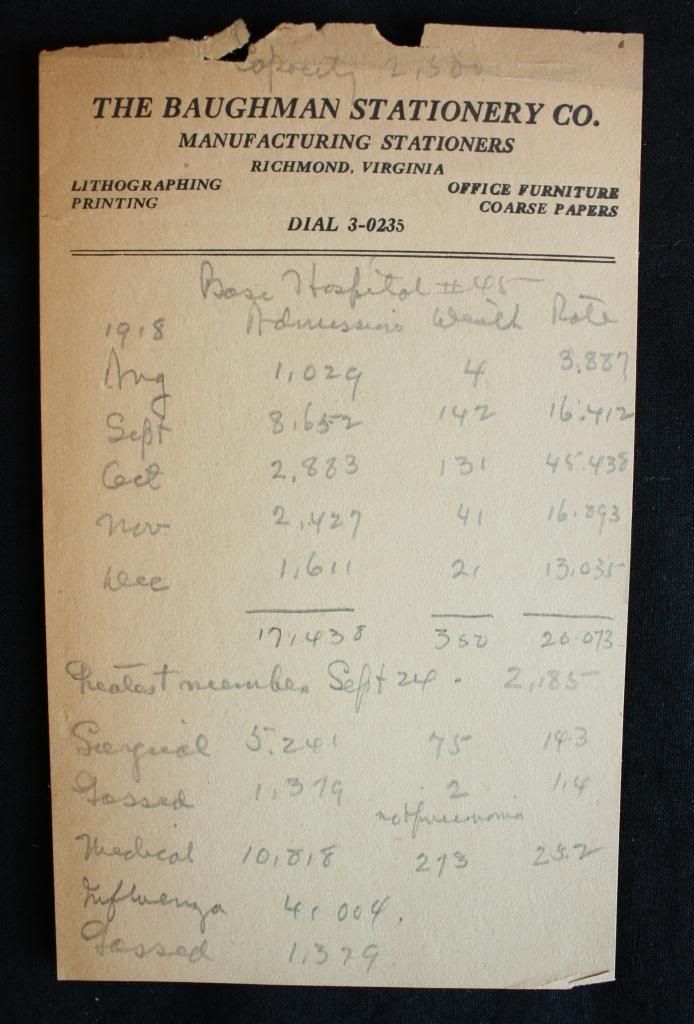 Capacity 2,500
THE BAUGHMAN STATIONERY CO.
MANUFACTURING STATIONERS
RICHMOND, VIRGINIA
LITHOGRAPHING OFFICE FURNITURE
PRINTING COARSE PAPERS
DIAL 3-0235
Base Hospital #45
1918 Admissions Death Rate
Aug 1,029 4 3.887
Sept 8,652 142 16.412
Oct 2,883 131 45.438
Nov 2,427 41 16.893
Dec 1,611 21 13.035
17,438 350 20.073
Greatest number Sept 24. 2,185
Surgical 5,241 75 14.3
Gassed 1,379 2 1.4
not pneumonia
Medical 10,818 273 25.2
Influenza 4,004.
Gassed 1,379